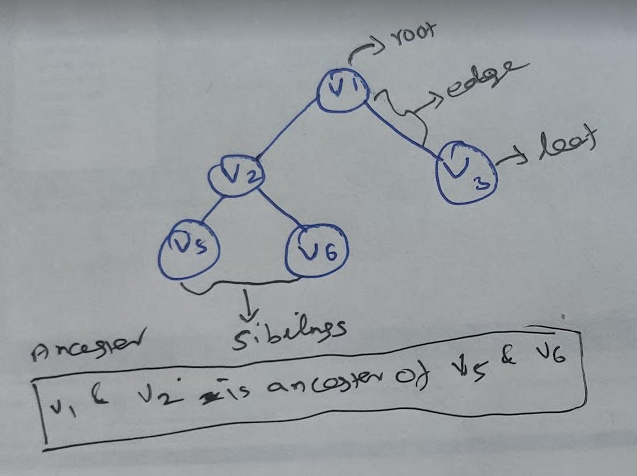 root
V1
edge
V2
V3
leaf
V5
V6
Sibilngs
Ancester
V1 & V2 is ancester of V5 & V6